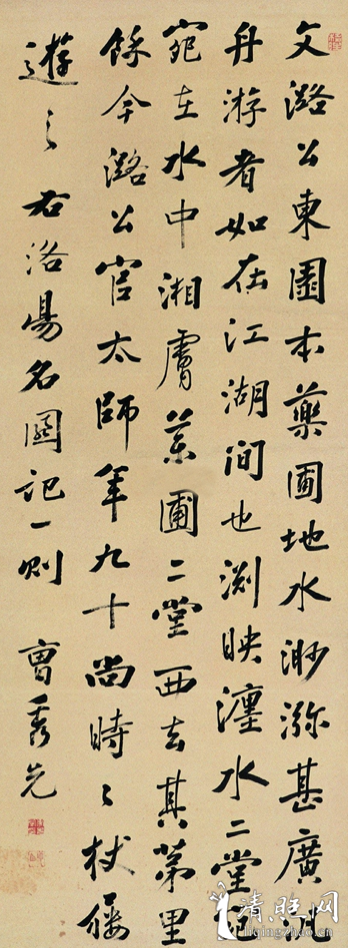 文潞公東園本藥圃地水渺瀰甚廣汎
舟游者如在江湖間也渊映瀍水二堂宛
宛在水中湘膚藥圃二堂西去其第里
餘今潞公官太師年九十尚時〻杖屨
遊之右洛陽名園記一則 曹秀先